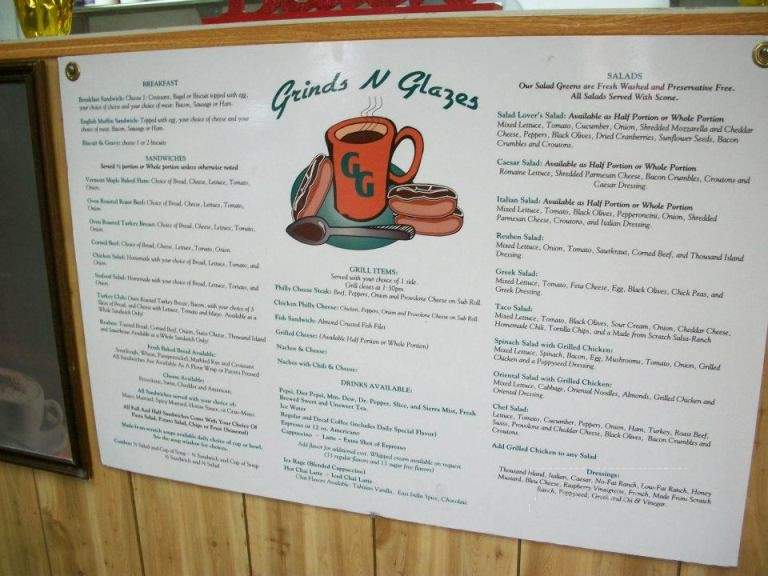 Grinds N Glazes
GG
BREAKFAST
Breakfast Sandwich: Choose 1- Croissant, Bagel or Biscuit topped with egg,
your choice of cheese and your choice of meat: Bacon, Sausage or Ham.
English Muffin Sandwich: Topped with egg, your choice of cheese and your
choice of meat: Bacon, Sausage or Ham.
Biscuit & Gravy: choose 1 or 2 biscuits
SANDWICHES
Served ½ portion or Whole portion unless otherwise noted
Vermont Maple Baked Ham: Choice of Bread, Cheese, Lettuce, Tomato,
Onion.
Oven Roasted Roast Beef: Choice of Bread, Cheese, Lettuce, Tomato,
Onion.
Oven Roasted Turkey Breast: Choice of Bread, Cheese, Lettuce, Tomato,
Onion.
Corned Beef: Choice of Bread, Cheese, Lettuce, Tomato, Onion.
Chicken Salad: Homemade with your choice of Bread, Lettuce, Tomato, and
Onion.
Seafood Salad: Homemade with your choice of Bread, Lettuce, Tomato, and
Onion.
Turkey Club: Oven Roasted Turkey Breast, Bacon, with your choice of 3
Slices of Bread, and Cheese with Lettuce, Tomato and Mayo. Available as a
Whole Sandwich Only!
Reuben: Toasted Bread, Corned Beef, Onion, Swiss Cheese, Thousand Island
and Sauerkraut Available as a Whole Sandwich Only!
Fresh Baked Bread Available:
Sourdough, Wheat, Pumpernickel, Marbled Rye and Croissant
All Sandwiches Are Available As A Flour Wrap or Panini Pressed
Cheese Available:
Provolone, Swiss, Cheddar and American.
All Sandwiches served with your choice of:
Mayo, Mustard, Spicy Mustard, Horse Sauce, or Cran-Mayo.
All Full And Half Sandwiches Come With Your Choice Of
Pasta Salad, Potato Salad, Chips or Fruit (Seasonal)
Made from scratch soups available daily choice of cup or bowl.
See the soup window for choices.
Combo: ½ Salad and Cup of Soup - ½ Sandwich and Cup of Soup
½ Sandwich and ½ Salad
GRILL ITEMS:
Served with your choice of 1 side.
Grill closes at 1:30pm.
Philly Cheese Steak: Beef, Peppers, Onion and Provolone Cheese on Sub Roll
Chicken Philly Cheese: Chicken, Peppers, Onion and Provolone Cheese on Sub Roll
Fish Sandwich: Almond Crusted Fish Filet
Grilled Cheese: (Available Half Portion or Whole Portion)
Nachos & Cheese:
Nachos with Chili & Cheese:
DRINKS AVAILABLE:
Pepsi, Diet Pepsi, Mtn. Dew, Dr. Pepper, Slice, and Sierra Mist, Fresh
Brewed Sweet and Unsweet Tea.
Ice Water
Regular and Decaf Coffee (includes Daily Special Flavor)
Espresso or 12 oz. Americano
Cappuccino - Latte - Extra Shot of Espresso
Add flavor for additional cost. Whipped cream available on request
(33 regular flavors and 13 sugar free flavors)
Ice Rage (Blended Cappuccino)
Hot Chai Latte - Iced Chai Latte
Chai Flavors Available: Tahitian Vanilla, East India Spice, Chocolate
SALADS
Our Salad Greens are Fresh Washed and Preservative Free.
All Salads Served With Scone.
Salad Lover's Salad: Available as Half Portion or Whole Portion
Mixed Lettuce, Tomato, Cucumber, Onion, Shredded Mozzarella and Cheddar
Cheese, Peppers, Black Olives, Dried Cranberries, Sunflower Seeds, Bacon
Crumbles and Croutons.
Caesar Salad: Available as Half Portion or Whole Portion
Romaine Lettuce, Shredded Parmesan Cheese, Bacon Crumbles, Croutons and
Caesar Dressing.
Italian Salad: Available as Half Portion or Whole Portion
Mixed Lettuce, Tomato, Black Olives, Pepperoncini, Onion, Shredded
Parmesan Cheese, Croutons, and Italian Dressing.
Reuben Salad:
Mixed Lettuce, Onion, Tomato, Sauerkraut, Corned Beef, and Thousand Island
Dressing.
Greek Salad:
Mixed Lettuce, Tomato, Feta Cheese, Egg, Black Olives, Chick Peas, and
Greek Dressing.
Taco Salad:
Mixed Lettuce, Tomato, Black Olives, Sour Cream, Onion, Cheddar Cheese,
Homemade Chili, Tortilla Chips, and a Made from Scratch Salsa-Ranch
Spinach Salad with Grilled Chicken:
Mixed Lettuce, Spinach, Bacon, Egg, Mushrooms, Tomato, Onion, Grilled
Chicken and a Poppyseed Dressing.
Oriental Salad with Grilled Chicken:
Mixed Lettuce, Cabbage, Oriental Noodles, Almonds, Grilled Chicken and
Oriental Dressing
Chef Salad:
Lettuce, Tomato, Cucumber, Peppers, Onion, Ham, Turkey, Roast Beef,
Swiss, Provolone and Cheddar Cheese, Black Olives, Bacon Crumbles and
Croutons.
Add Grilled Chicken to any Salad
Dressings:
Thousand Island, Italian, Caesar, No-Fat Ranch, Low-Fat Ranch, Honey
Mustard, Bleu Cheese, Raspberry Vinaigrette, French, Made From Scratch
Ranch, Poppyseed, Greek and Oil & Vinegar.